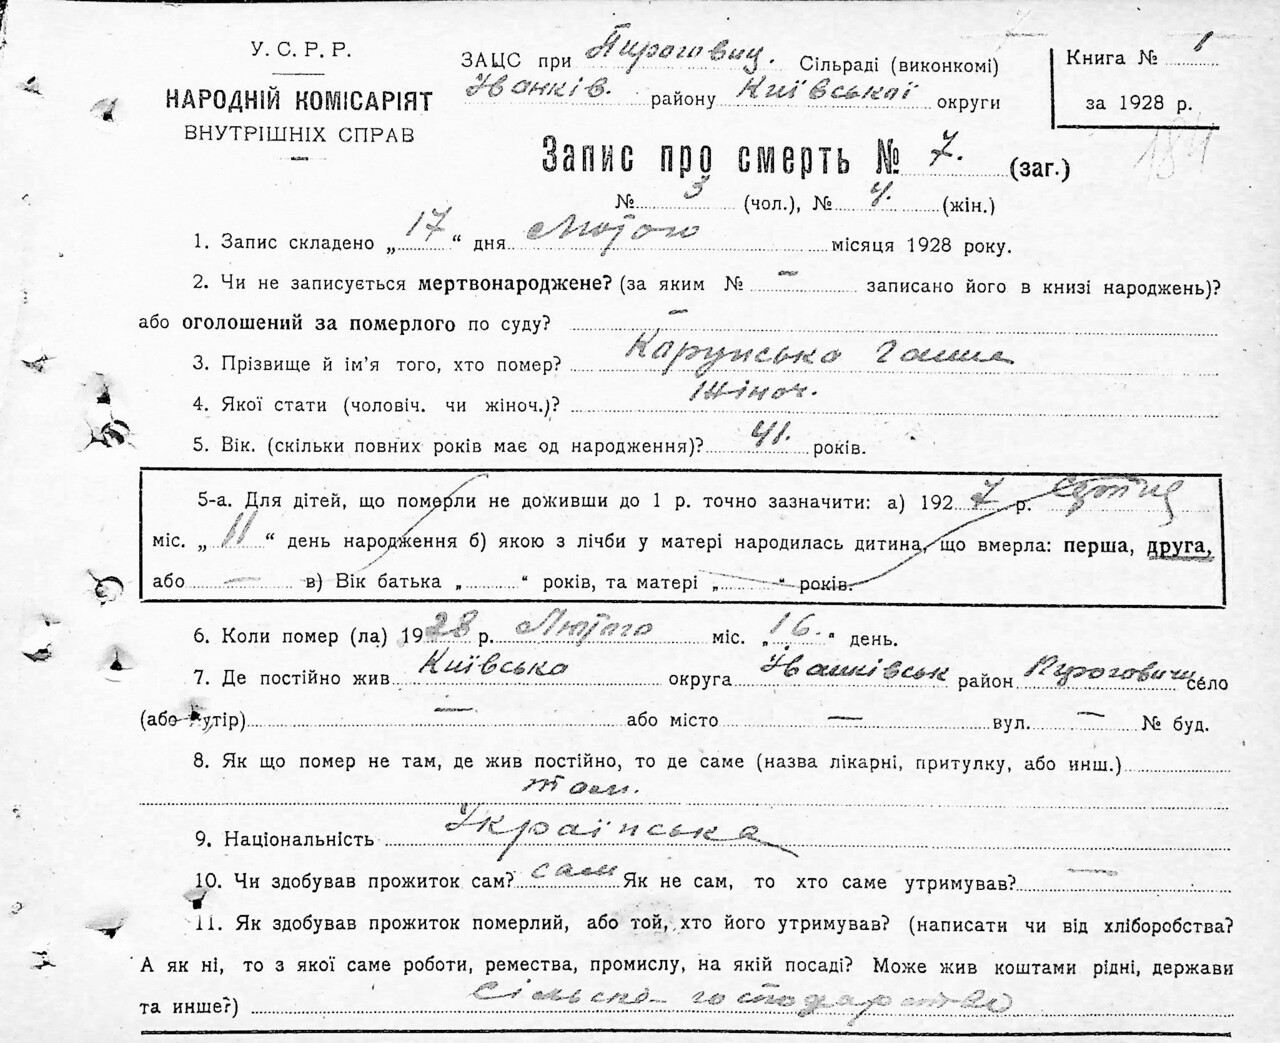 У. С. Р. Р.
НАРОДНІЙ КОМІСАРІЯТ
ВНУТРІШНІХ СПРАВ
ЗАЦС при Пирогович. Сільраді (виконкомі)
Іванків. району Київської округи
Книга № 1
за 1928 р.
Запис про смерть № 7. (заг.)
№ 3 (чол.), № 4. (жін.)
1. Запис складено „17“ дня Лютого місяця 1928 року.
2. Чи не записується мертвонароджене? (за яким № — записано його в книзі народжень)?
або оголошений за померлого по суду? —
3. Прізвище й ім'я того, хто помер? Ганна
4. Якої стати (чоловіч. чи жіноч.)? Жіноч.
5. Вік. (скільки повних років має од народження)? 41. років.
5-а. Для дітей, що померли не доживши до 1 р. точно зазначити: а) 1927 р.
міс. „11“ день народження б) якою з лічби у матері народилась дитина, що вмерла: перша, друга,
або — в) Вік батька „ “ років, та матері „ “ років.
6. Коли помер (ла) 1928 р. Лютого міс. „16.“ день.
7. Де постійно жив Київська округа Іванківськ район Пироговичі село
(або хутір) — або місто — вул. — № буд.
8. Як що помер не там, де жив постійно, то де саме (назва лікарні, притулку, або инш.)
там.
9. Національність Українська
10. Чи здобував прожиток сам? сам Як не сам, то хто саме утримував? —
11. Як здобував прожиток померлий, або той, хто його утримував? (написати чи від хліборобства?
А як ні, то з якої саме роботи, ремества, промислу, на якій посаді? Може жив коштами рідні, держави
та инше?) Сільське-господарство